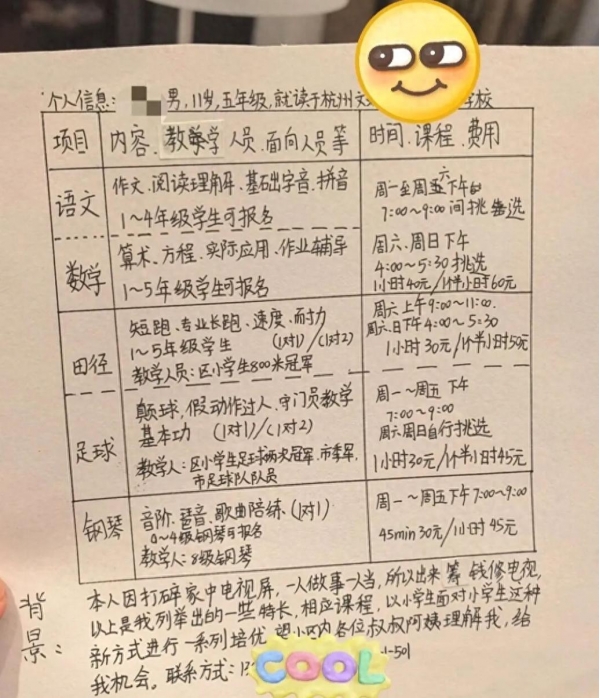 个人信息: 男,11岁,五年级,就读于杭州文 学校
项目 内容、教学人员、面向人员等 时间、课程、费用
语文 作文、阅读理解、基础字音、拼音
1~4年级学生可报名
周一至周五六下午的
7:00~9:00间挑选
数学 算术、方程、实际应用、作业辅导
1~5年级学生可报名
周六、周日下午
4:00~5:30挑选
1小时40元/1个半小时60元
田径 短跑、专业长跑、速度、耐力
1~5年级学生 (1对1)/(1对2)
教学人员:区小学生800米冠军
周六上午9:00~11:00.
周六.日下午4:00~5:30
1小时30元/1个半小时50元
足球 颠球,假动作过人、守门员教学
基本功 (1对1)/(1对2)
教学人:区小学生足球两次冠军、市季军、
市足球队队员
周一~周五 下午
7:00~9:00
周六周日自行挑选
1小时30元/1个半小时45元
钢琴 音阶、琶音、歌曲陪练、(1对1)
0~4级钢琴可报名
教学人:8级钢琴
周一~周五下午7:00~9:00
45min 30元/1小时45元
背景:
本人因打碎家中电视屏,一人做事一人当,所以出来筹钱修电视,
以上是我列举出的一些特长,相应课程,以小学生面对小学生这种
新方式进行一系列培优 望小区内各位叔叔阿姨理解我,给
我机会。联系方式:13 1-501
COOL